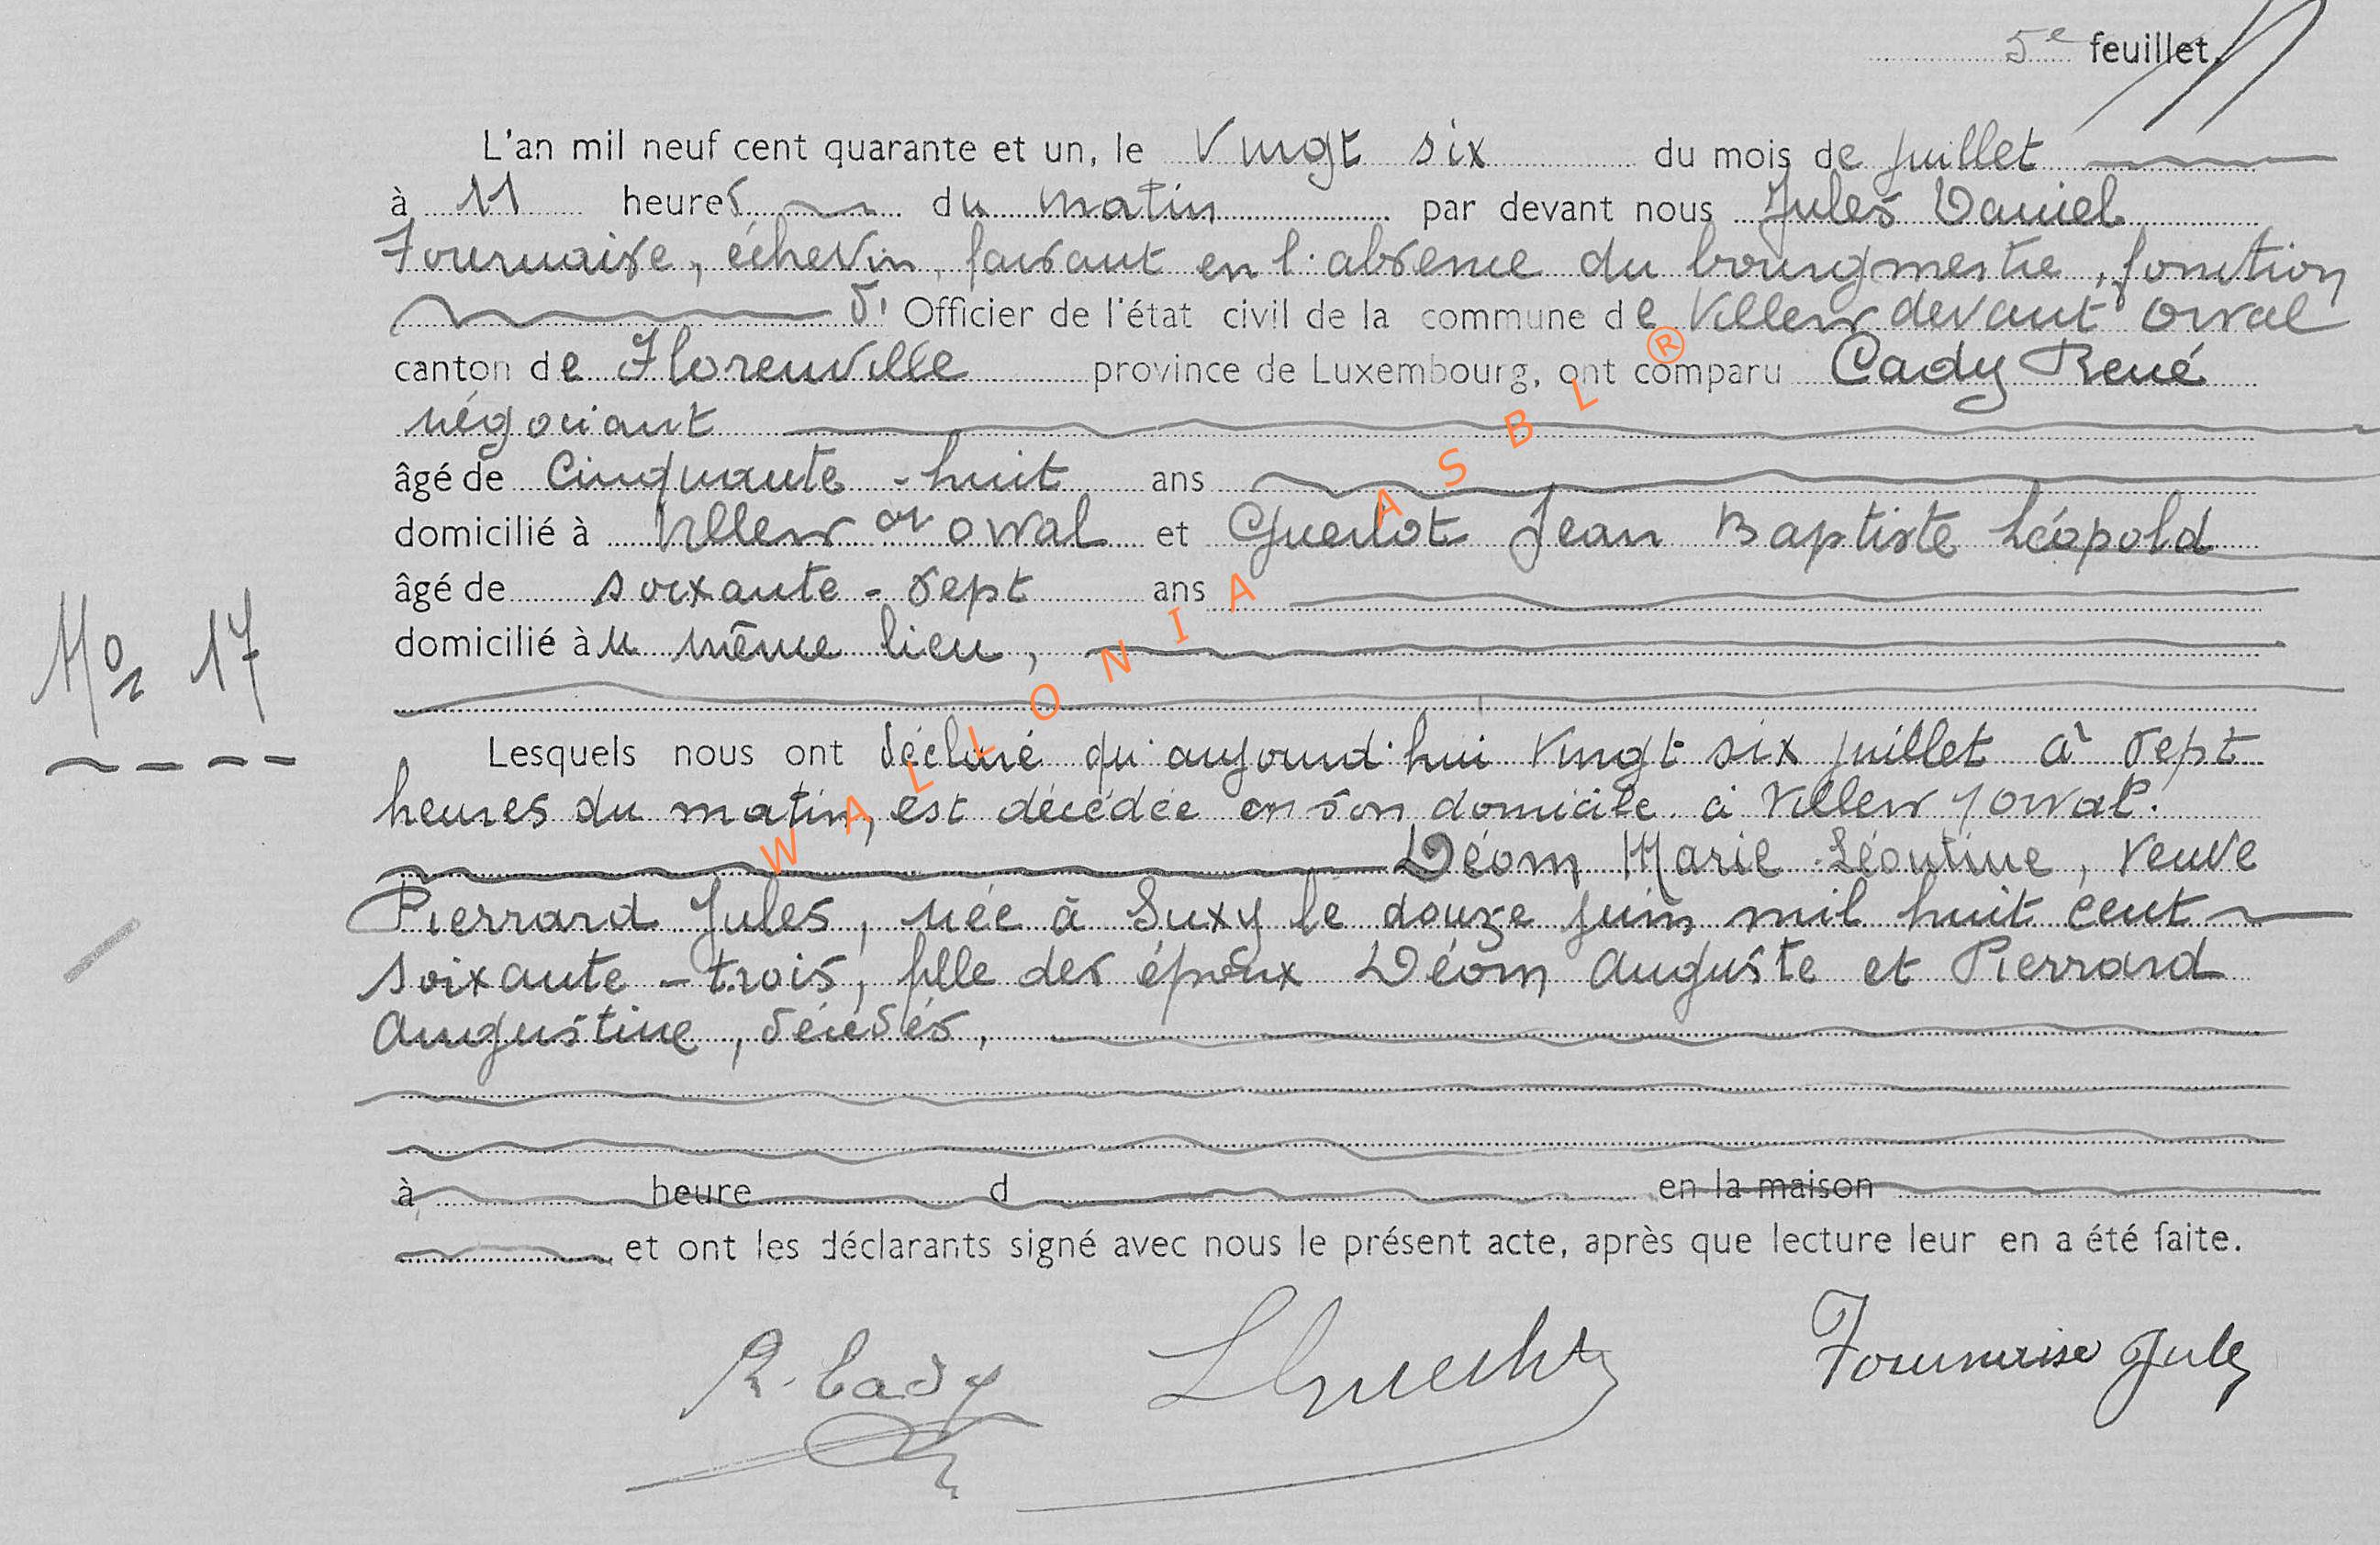 5e feuillet.
L'an mil neuf cent quarante et un, le Vingt six du mois de juillet
à 11 heures du matin par devant nous Jules Daniel
Fournaise, échevin, faisant en l'absence du bourgmestre, fonction
d' Officier de l'état civil de la commune de Villers devant Orval
canton de Florenville province de Luxembourg, ont comparu Cady René
négociant
âgé de Cinquante-huit ans
domicilié à Villers dt orval et Guerlot Jean Baptiste Léopold
âgé de soixante-sept ans
domicilié au même lieu,
No 17
Lesquels nous ont déclaré qu'aujourd'hui Vingt-six juillet à sept
heures du matin, est décédée en son domicile à Villers / orval.
Déom Marie Léontine, veuve
Pierrard Jules, née à Suxy le douze juin mil huit cent
soixante-trois, fille des époux Déom Auguste et Pierrard
Augustine, décédés,
à heure d en la maison
et ont les déclarants signé avec nous le présent acte, après que lecture leur en a été faite.
R. Cady Fournaise Jules
WALLONIA ASBL ®